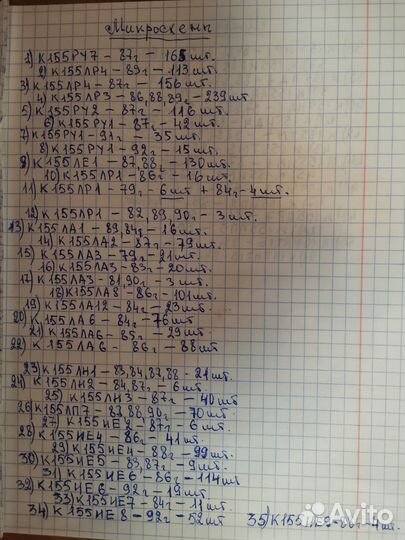 Микросхемы
1) К155РУ7 - 87г - 165 шт.
2) К155ЛР4 - 89г - 113 шт.
3) К155ЛР4 - 87г - 156 шт.
4) К155ЛР3 - 86,88,89г - 239 шт
5) К155РУ2 - 87г - 116 шт.
6) К155РУ1 - 87г - 42 шт.
7) К155РУ1 - 91г - 35 шт.
8) К155РУ1 - 92г - 15 шт.
9) К155ЛЕ1 - 87,88г - 130 шт.
10) К155ЛР1 - 86г - 16 шт.
11) К155ЛР1 - 79г - 6 шт + 84г - 4 шт.
12) К155ЛР1 - 82,89,90г - 3 шт.
13) К155ЛА1 - 89,84г - 16 шт.
14) К155ЛА2 - 87г - 79 шт.
15) К155ЛА3 - 79г - 21 шт.
16) К155ЛА3 - 83г - 20 шт.
17) К155ЛА3 - 81,90г - 3 шт.
18) К155ЛА8 - 86г - 101 шт.
19) К155ЛА12 - 84г - 23 шт.
20) К155ЛА6 - 84г - 76 шт
21) К155ЛА6 - 85г - 29 шт
22) К155ЛА6 - 86г - 88 шт
23) К155ЛН1 - 83,84,87,88 - 21 шт.
24) К155ЛН2 - 84,87г - 6 шт.
25) К155ЛН3 - 87г - 40 шт
26) К155ЛП7 - 87,88,90г - 70 шт.
27) К155ИЕ2 - 87г - 6 шт.
28) К155ИЕ4 - 86г - 41 шт.
29) К155ИЕ4 - 88г - 99 шт.
30) К155ИЕ5 - 83,87г - 9 шт.
31) К155ИЕ6 - 86г - 114 шт
32) К155ИЕ6 - 92г - 19 шт.
33) К155ИЕ7 - 84г - 11 шт.
34) К155ИЕ8 - 92г - 52 шт 35) К155ИЕ9 - 86г - 4 шт.
Avito